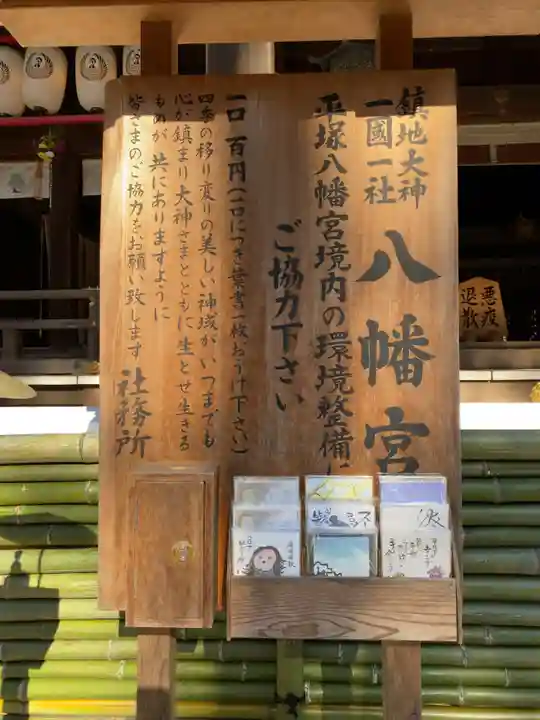 鎮地大神
一國一社
八幡宮
平塚八幡宮境内の環境整備に
ご協力下さい
一口 百円(一口につき葉書一枚おうけ下さい)
四季の移り変りの美しい神域がいつまでも
心が鎮まり大神さまとともに生とせ生きる
もめが共にありますように
皆さまのご協力をお願い致します
社務所
悪疫
退散